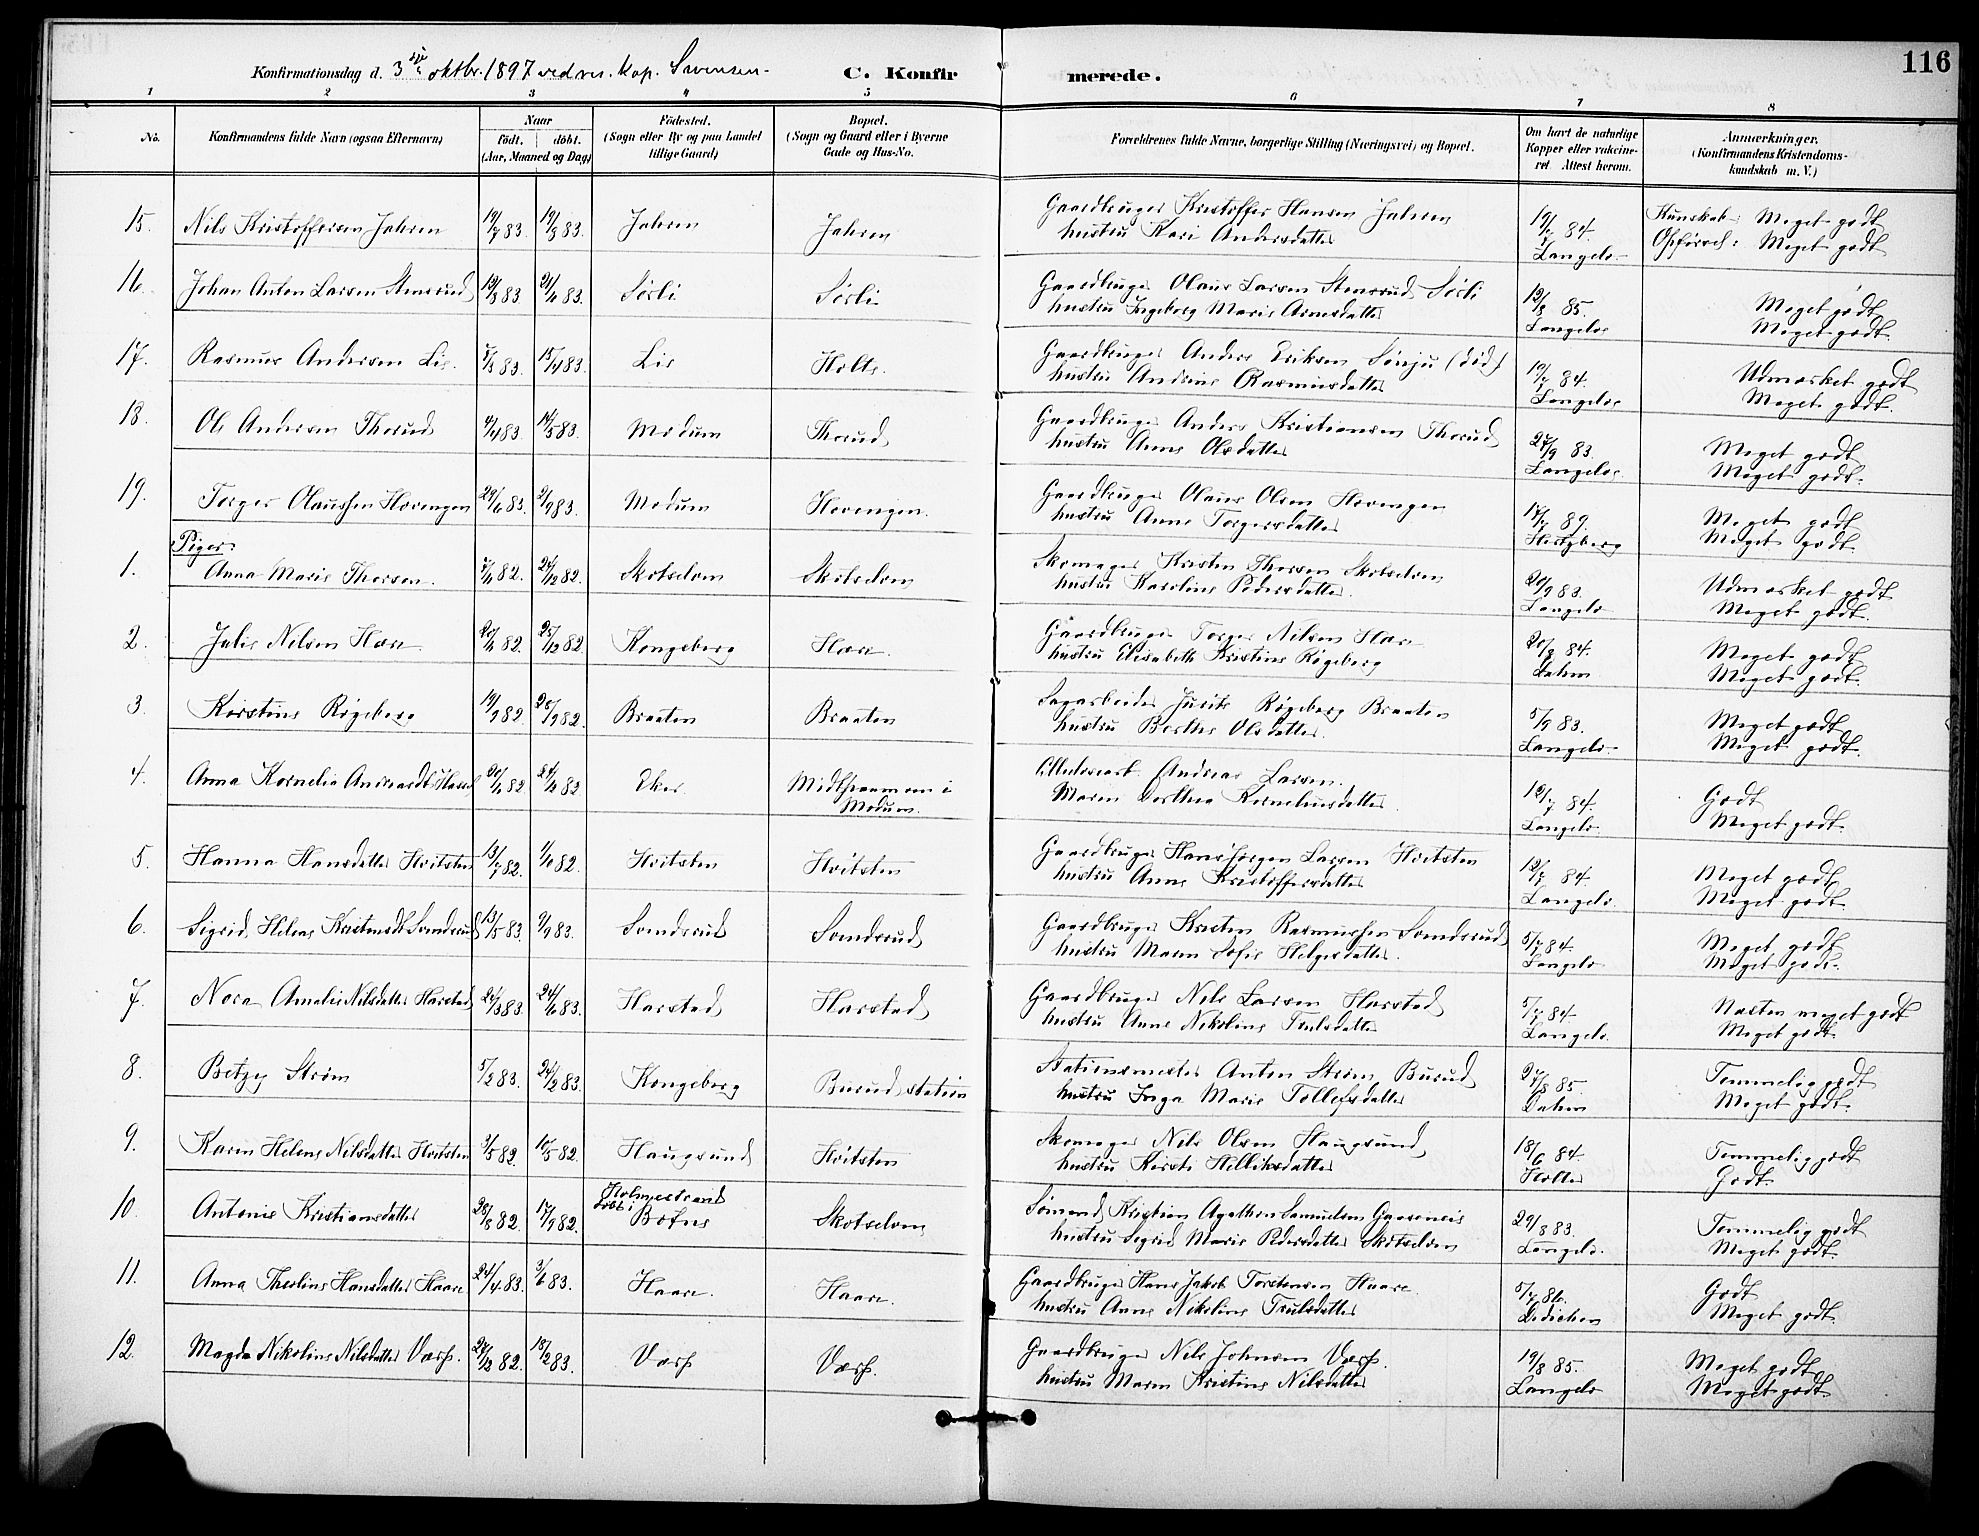 116
Konfirmationsdag d. 3die oktbr. 1897 ved res. kap. Svensen.
C. Konfirmerede.
1 2 3 4 5 6 7 8
No.
Konfirmandens fulde Navn (ogsaa Efternavn)
Naar
født. døbt.
(Aar, Maaned og Dag)
Fødested.
(Sogn eller By og paa Landet
tillige Gaard)
Bopæl.
(Sogn og Gaard eller i Byerne
Gade og Hus-No.
Forældrenes fulde Navne, borgerlige Stilling (Næringsvei) og Bopæl.
Om havt de naturlige
Kopper eller vakcine-
ret. Attest herom.
Anmærkninger.
(Konfirmandens Kristendoms-
kundskab m. V.)
15. Nils Kristoffersen Jahren 19/7 83. 19/8 83. Jahren Jahren Gaardbruger Kristoffer Hansen Jahren 19/7 84. Kunskab: Meget godt
hustru Kari Andersdatter Langelo Opførsel: Meget godt
16. Johan Anton Larsen Stensrud 19/3 83 21/4 83. Sørli Sørli Gaardbruger Olaus Larsen Stensrud Sørli 12/8 85. Meget godt
hustru Ingeborg Marie Arnesdatter Langelo Meget godt.
17. Rasmus Andersen Lie. 7/3 83. 15/4 83. Lie Holte. Gaardbruger Anders Eriksen Sønju (død) 19/7 84. Udmærket godt
hustru Andrine Rasmusdatter Langelo Meget godt.
18. Ole Andersen Thorud 4/4 83. 14/5 83. Modum Thorud Gaardbruger Anders Kristiansen Thorud 27/9 83. Meget godt
hustru Anne Olsdatter Langelo Meget godt.
19. Torger Olaussen Hovengen 29/6 83. 2/9 83. Modum Hovengen. Gaardbruger Olaus Olsen Hovengen 17/7 89. Meget godt
hustru Anne Torgersdatter Hertzberg Meget godt.
Piger.
1. Anna Marie Thorsen. 7/11 82. 24/12 82. Skotselven Skotselven Skomager Kristen Thorsen Skotselven 20/9 83. Udmærket godt
hustru Karoline Pedersdatter. Langelo Meget godt.
2. Julie Nelsen Hære. 20/11 82. 25/12 82 Kongsberg Hære. Gaardbruger Torger Nilsen Hære 20/8 84. Meget godt
hustru Elisabeth Kristine Røgeberg Dahm Meget godt.
3. Kirstine Røgeberg 19/7 82. 28/9 82. Braaten Braaten Sagarbeider Jurits Røgeberg Braaten 5/9 83. Meget godt
hustru Berthe Olsdatter. Langelo Meget godt.
4. Anna Kornelia Andreasdt. 20/11 82 24/12 82 Eker. Midtspanmoen i Andreas Larsen. 12/7 84. Godt
Modum. Maren Dorthea Korneliusdatter. Langelo Meget godt.
5. Hanna Hansdatter Hvitsten 13/7 82. 1/10 82. Hvitsten Hvitsten Gaardbruger Hans Jørgen Larsen Hvitsten 12/7 84. Meget godt
hustru Anne Kristoffersdatter Langelo. Meget godt.
6. Sigrid Helene Kristensdt. Sandsrud 13/5 83. 9/9 83. Sandsrud Sandsrud Gaardbruger Kristen Rasmussen Sandsrud 5/7 84. Meget godt
hustru Maren Sofie Helgesdatter. Langelo Meget godt.
7. Nora Amalie Nilsdatter Harstad 21/3 83. 24/6 83. Harstad Harstad Gaardbruger Nils Larsen Harstad 5/7 84 Næsten meget godt
hustru Anne Nikoline Trulsdatter Langelo. Meget godt.
8. Betzy Strøm 5/2 83. 24/2 83. Kongsberg Burud station Stationsmester Anton Strøm Burud 27/8 85 Temmelig godt
hustru Inga Marie Tollefsdatter Dahm Meget godt.
9. Karen Helene Nilsdatter Hvitsten 3/5 82. 10/5 82. Haugsund Hvitsten Skomager Nils Olsen Haugsund 18/6 84. Temmelig godt
hustru Kirsti Helliksdatter Holter Godt.
10. Antonie Kristiansdatter 28/8 82. 17/9 82. Holmestrand
døbt i Botne Skotselven Sømand Kristian Agathon Samuelsen 29/8 83. Temmelig godt
hustru Sigrid Marie Pedersdatter Skotselven Langelo. Meget godt.
11. Anna Theoline Hansdatter Haare 21/4 83. 3/6 83. Haare. Haare. Gaardbruger Hans Jakob Torstensen Haare. 5/7 86. Godt
hustru Anne Nikoline Trulsdatter Didichen Meget godt.
12. Magda Nikoline Nilsdatter Værp. 27/12 82. 18/2 83. Værp Værp. Gaardbruger Nils Johnsen Værp. 19/8 85. Meget godt
hustru Maren Kristine Nilsdatter Langelo Meget godt.